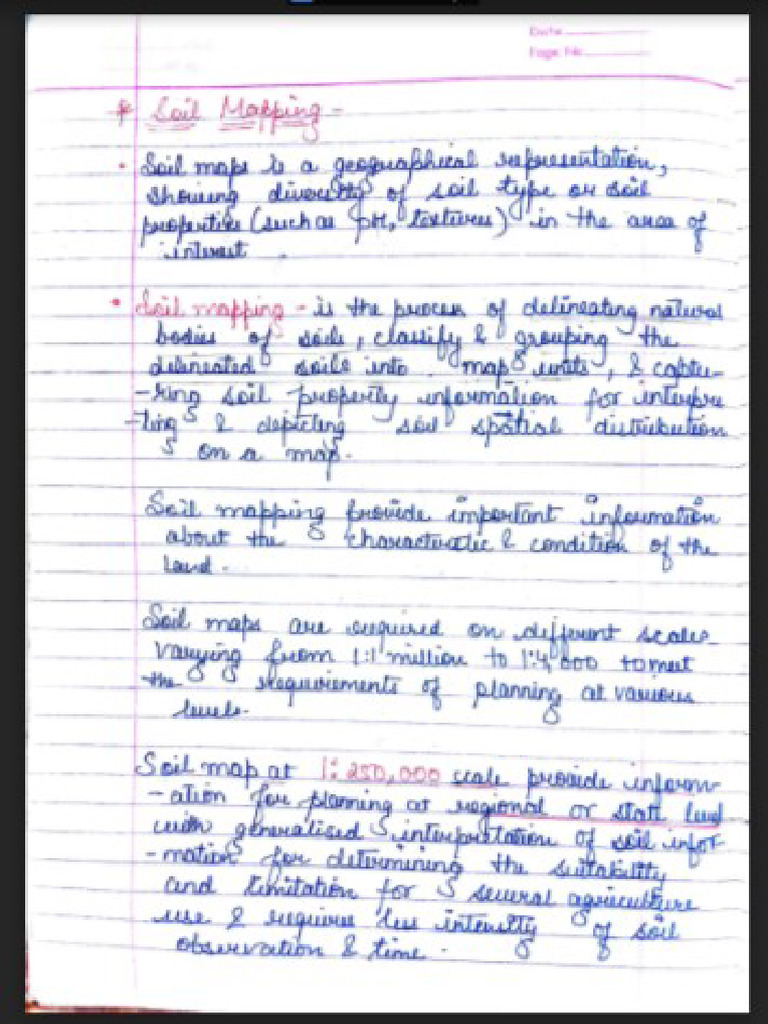 Date
Page No
* Soil Mapping -
• Soil maps is a geographical representation,
showing diversity of soil type or soil
properties (such as pH, textures) in the area of
interest .
• Soil mapping - is the process of delineating natural
bodies of soils, classify & grouping the
delineated soils into map units, & captu-
-ring soil property information for interpre
-ting & depicting soil spatial distribution
on a map.
Soil mapping provide important information
about the characteristic & condition of the
land.
Soil maps are required on different scales
varying from 1:1 million to 1:4,000 to meet
the requirements of planning at various
levels.
Soil map at 1:250,000 scale provide inform
-ation for planning at regional or state level
with generalised interpretation of soil infor-
-mation for determining the suitability
and limitation for several agriculture
use & requires less intensity of soil
observation & time.